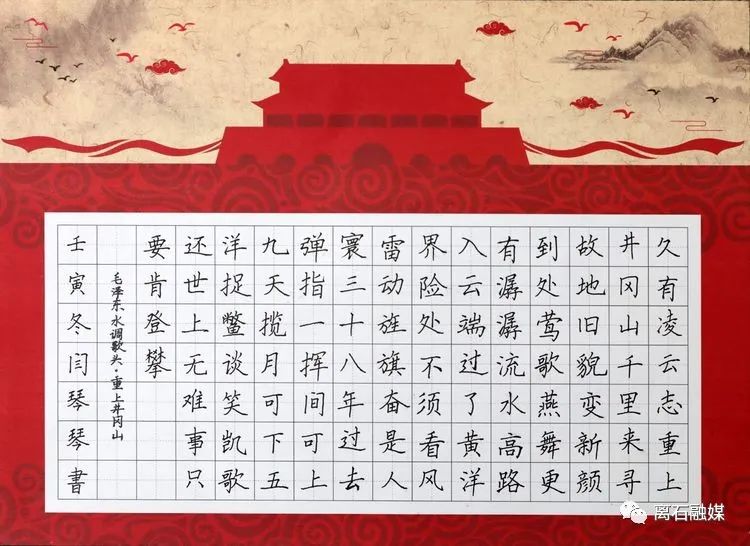 久有凌云志重上
井冈山千里来寻
故地旧貌变新颜
到处莺歌燕舞更
有潺潺流水高路
入云端过了黄洋
界险处不须看风
雷动旌旗奋是人
寰三十八年过去
弹指一挥间可上
九天揽月可下五
洋捉鳖谈笑凯歌
还世上无难事只
要肯登攀
毛泽东水调歌头·重上井冈山
壬寅冬闫琴琴書
离石融媒